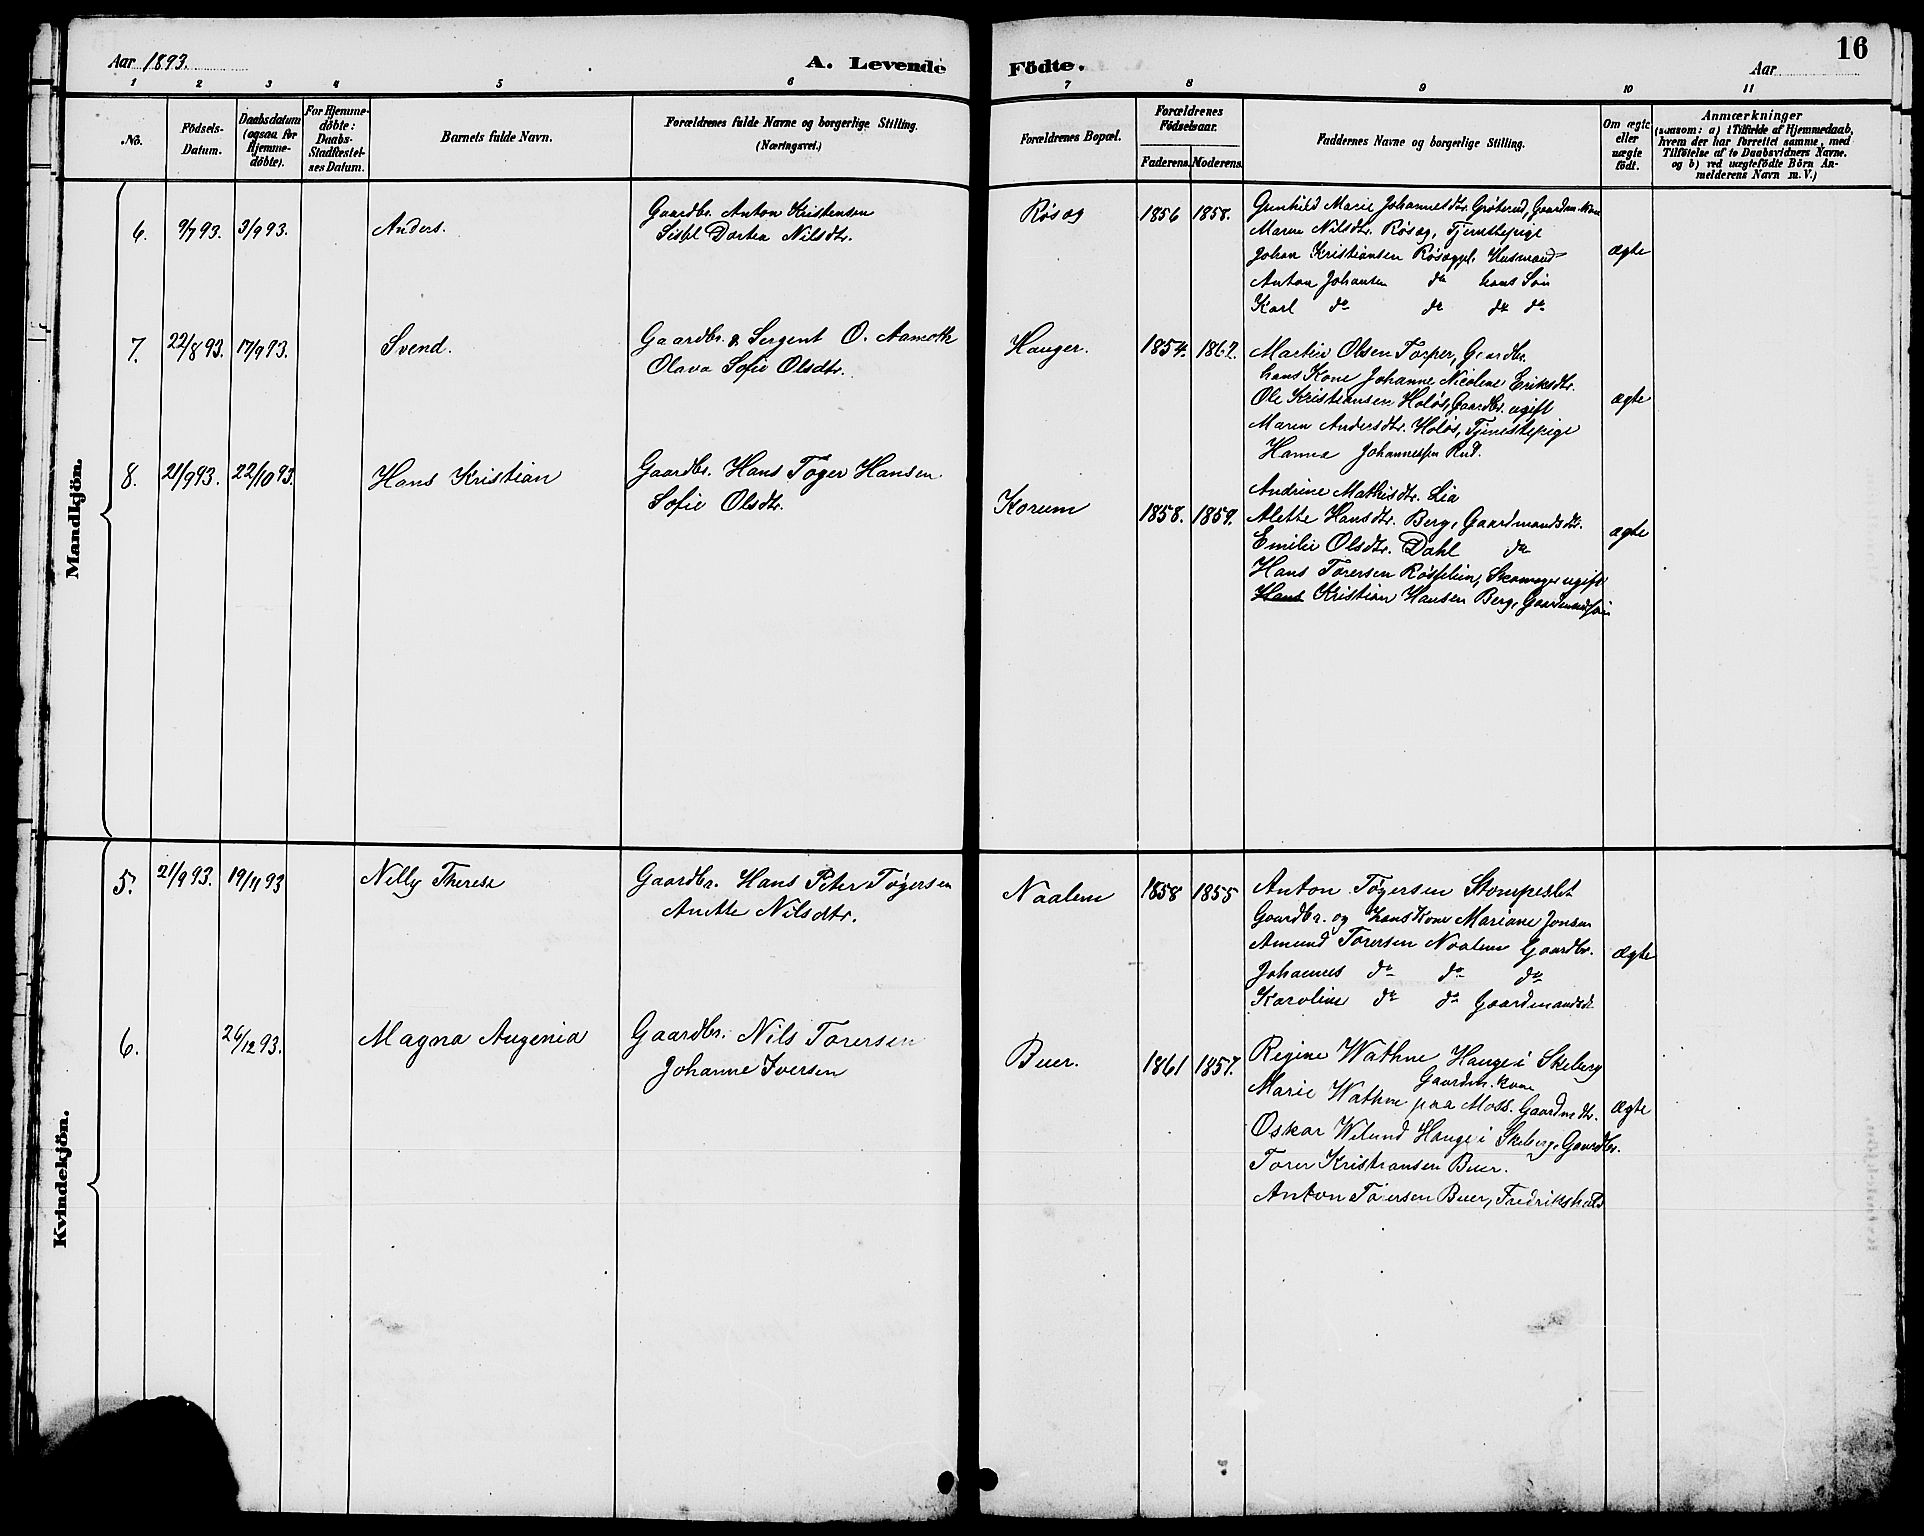 Aar 1893.
A. Levende Födte.
Aar
16
1 2 3 4 5 6 7 8 9 10 11
No.
Födsels-
Datum.
Daabsdatum
(ogsaa for
Hjemme-
döbte).
For Hjemme-
döbte:
Daabs-
Stadfæstel-
ses Datum.
Barnets fulde Navn.
Forældrenes fulde Navne og borgerlige Stilling.
(Næringsvei.)
Forældrenes Bopæl.
Forældrenes
Födselsaar.
Faderens. Moderens.
Faddernes Navne og borgerlige Stilling.
Om ægte
eller
uægte
födt.
Anmærkninger
(saasom: a) i Tilfælde af Hjemmedaab,
hvem der har forrettet samme, med
Tilföielse af to Daabsvidners Navne.
og b) ved uægtefödte Börn An-
melderens Navn m. V.)
Mandkjön.
6. 9/7 93. 3/9 93. Anders.
Gaardbr. Anton Kristensen
Sissel Dortea Nilsdtr.
Røsæg 1856 1858.
Gunhild Marie Johannesdtr. Grøterud, Gaardm. Kone
Maren Nilsdtr. Røsæg, Tjenestepige
Johan Kristiansen Røsægpl. Husmand
Anton Johansen do hans Søn
Karl do do do do
ægte
7. 22/8 93. 17/9 93. Svend.
Gaardbr. & Sergent O. Aamoth
Olava Sofie Olsdtr.
Hauger. 1854. 1867.
Martin Olsen Torper, Gaardbr.
hans Kone Johanne Nicoline Eriksdtr.
Ole Kristiansen Holøs, Gaardbr. ugift
Maren Andersdtr. Holøs, Tjenestepige
Hanna Johannessen Rud.
ægte
8. 21/9 93. 22/10 93. Hans Kristian
Gaardbr. Hans Toger Hansen
Sofie Olsdtr.
Korum 1858. 1859.
Andrine Mathisdtr. Lia
Alette Hansdtr. Berg, Gaardmandsdtr.
Emilie Olsdtr. Dahl do
Hans Torersen Røsselien, Skomager ugift
Hans Kristian Hansen Berg, Gaardmandssøn
ægte
Kvindekjön.
5. 21/9 93. 19/11 93 Nelly Therese
Gaardbr. Hans Peter Tøgersen
Anette Nilsdtr.
Naalem 1858 1855
Anton Tøgersen Stompeslet
Gaardbr. og hans Kone Mariane Jonsen
Amund Torersen Naalem Gaardbr.
Johannes do do do
Karoline do do Gaardmandsdt.
ægte
6. 26/12 93. Magna Augenia
Gaardbr. Nils Torersen
Johanne Iversen
Buer. 1861 1857.
Regine Wathne Hauge i Skeberg
Gaardbr. Kone
Marie Wathne paa Moss. Gaardmdtr.
Oskar Wilund Hauge i Skeberg, Gaardbr.
Torer Kristiansen Buer.
Anton Torersen Buer, Fredrikshald
ægte